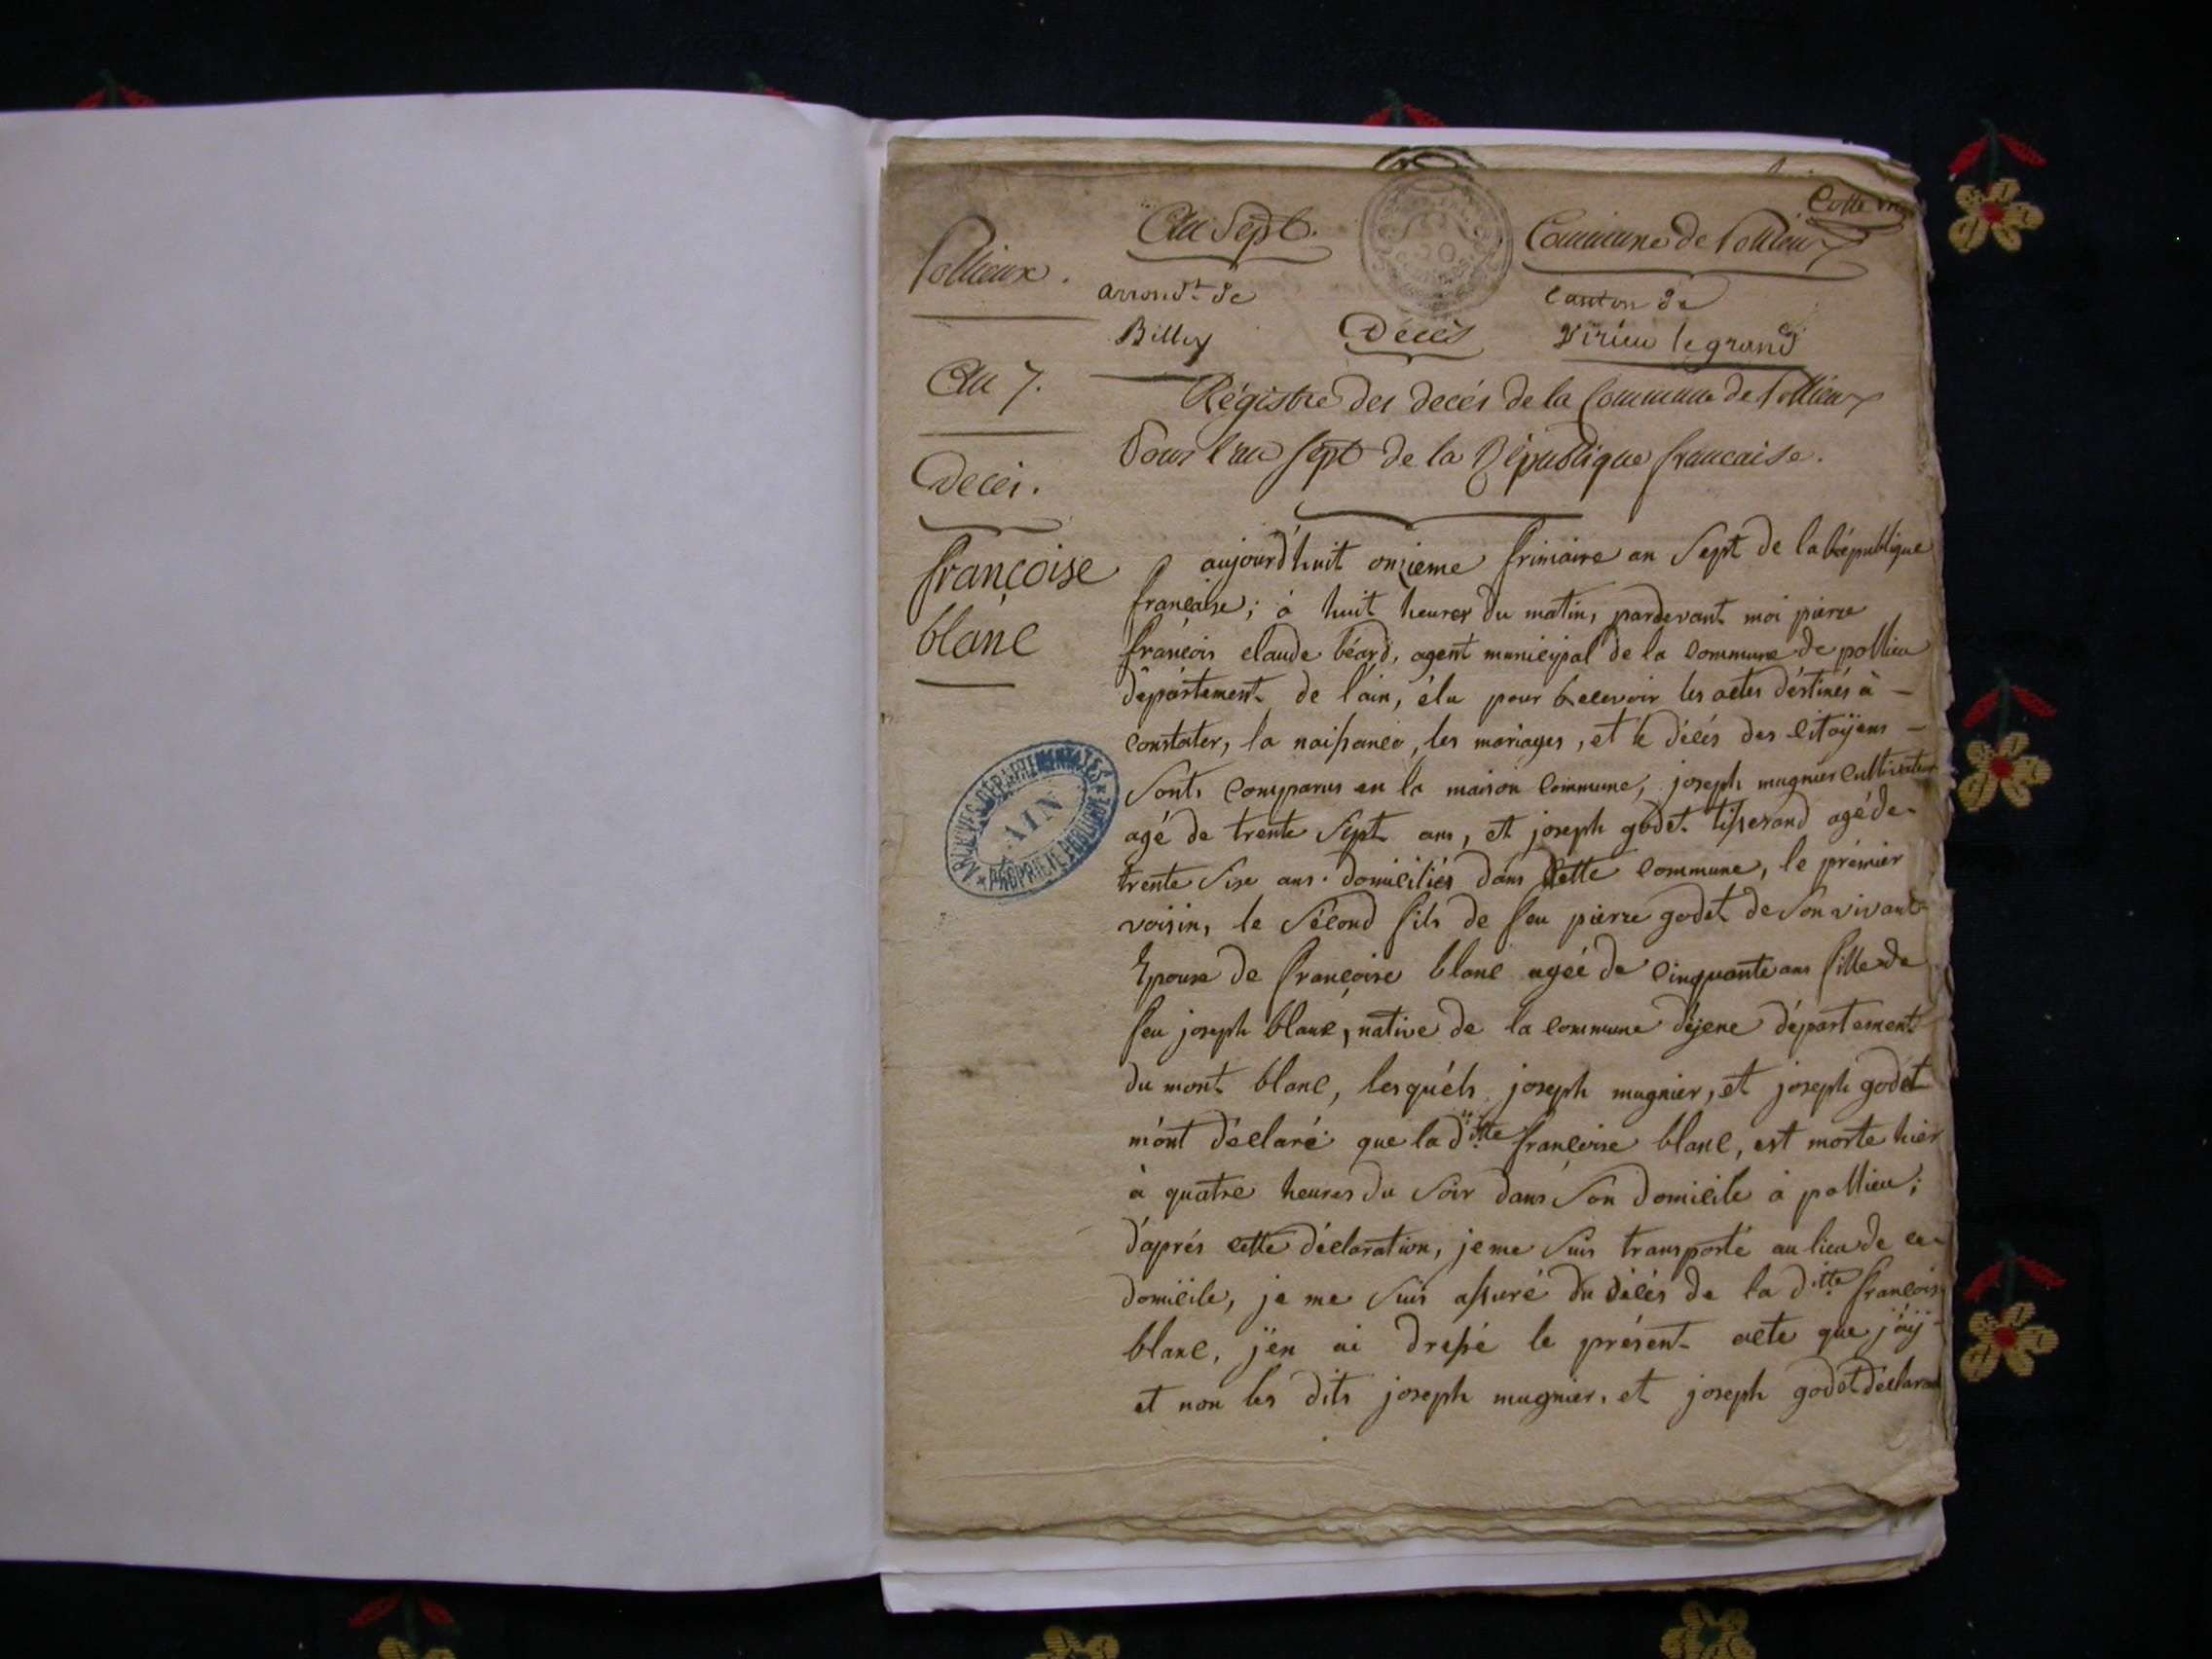 Cotte un
Pollieux.
An Sept.
Commune de Pollieux
arrondt. de
Canton de
Billey
Décès
Virieu le grand
An 7.
Régistre des decés de la Commune de Pollieux
Pour l'an sept de la République francaise.
Decès.
françoise
blanc
aujourd'huit onzieme frimaire an Sept de la République
française; à huit heures du matin, pardevant moi pierre
françois claude béard, agent municipal de la commune de pollieu
département de l'ain, élu pour recevoir les actes déstinés à -
constater, la naissance, les mariages, et le décés des citoÿens -
Sonts comparus en la maison commune, joseph mugnier cultivateur
agé de trente Sept ans, et joseph godet tisserand agé de
trente Sixe ans. domiciliés dans cette commune, le prémier
voisin, le Sécond fils de feu pierre godet de Son vivant
Epoux de françoise blanc agée de cinquante ans fille de
feu joseph blanc, native de la commune déjene département
du mont blanc, lesquéls joseph mugnier, et joseph godet
m'ont déclaré que la ditte françoise blanc, est morte hier
à quatre heures du Soir dans Son domicile à pollieu;
d'aprés cette déclaration, je me Suis transporté au lieu de ce
domicile, je me Suis assuré du décés de la ditte françoise
blanc, j'en ai dressé le présent acte que j'aÿ
et non les dits joseph mugnier, et joseph godet déclarant
ARCHIVES DÉPARTEMENTALES
AIN
PROPRIÉTÉ PUBLIQUE